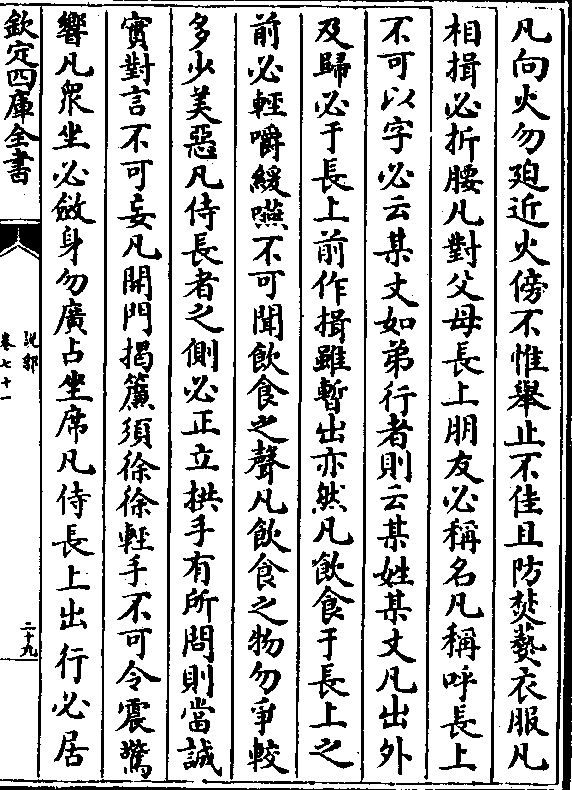 凡向火勿廹近火傍不惟舉止不佳且防焚爇衣服凡
相揖必折腰凡對父母長上朋友必稱名凡稱呼長上
不可以字必云某丈如弟行者則云某姓某丈凡出外
及歸必于長上前作揖雖暫出亦然凡飲食于長上之
前必輕嚼緩嚥不可聞飲食之聲凡飲食之物勿爭較
多少美惡凡侍長者之側必正立拱手有所問則當誠
實對言不可妄凡開門揭簾須徐徐輕手不可令震驚
響凡眾坐必斂身勿廣占坐席凡侍長上出行必居
欽定四庫全書
說郛
卷七十一
二十九